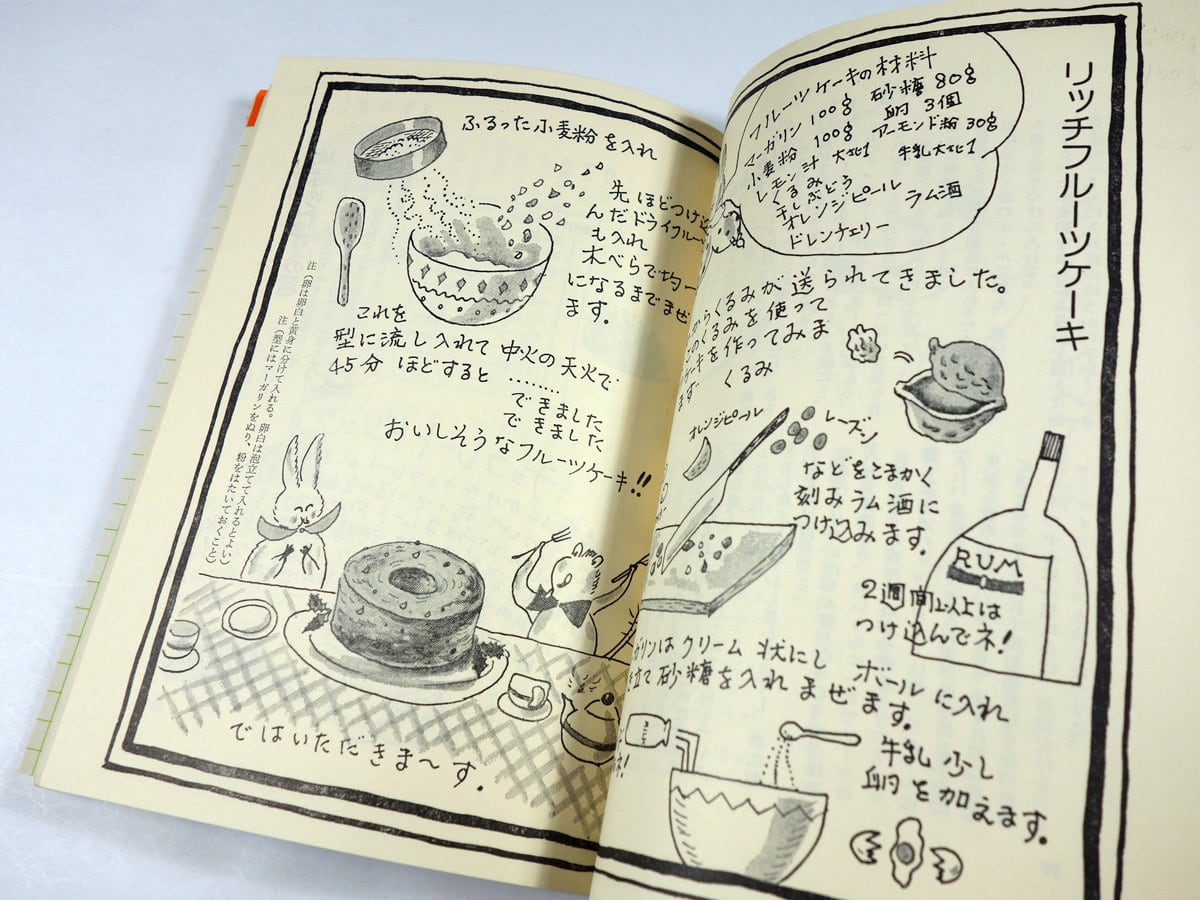 リッチフルーツケーキ
フルーツケーキの材料
マーガリン 100g 砂糖 80g
小麦粉 100g 卵 3個
レモン汁 大さじ1 アーモンド粉 30g
くるみ 牛乳大さじ1
干しぶどう
オレンジピール ラム酒
ドレンチェリー
からくるみが送られてきました。
くるみを使って
ケーキを作ってみま
ます くるみ
オレンジピール
レーズン
などをこまかく
刻みラム酒に
つけ込みます。
RUM
2週間以上は
つけ込んでネ!
ガリンはクリーム状にし
立て砂糖を入れまぜます。
ボールに入れ
牛乳少し
卵を加えます。
ふるった小麦粉を入れ
先ほどつけ込
んだドライフルー
も入れ
木べらで均一
になるまでまぜ
ます。
これを
型に流し入れて中火の天火で
45分ほどすると………
できました
できました
おいしそうなフルーツケーキ!!
注(卵は卵白と黄身に分けて入れる。卵白は泡立てて入れるとよい)
注(型にはマーガリンをぬり、粉をはたいておくこと)
ではいただきま〜す.